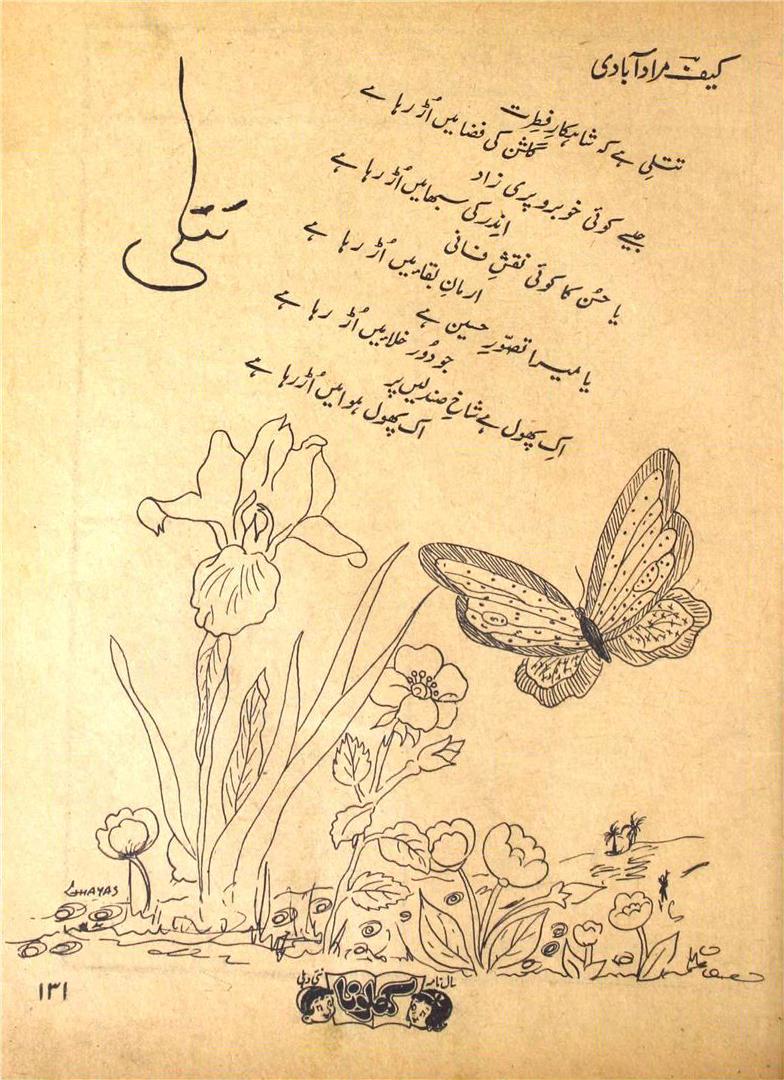 کیف مرادآبادی
تتلی
تتلی ہے کہ شاہکارِ فطرت
گلشن کی فضا میں اُڑ رہا ہے
جیسے کوئی خوبرو پری زاد
اِندر کی سبھا میں اُڑ رہا ہے
یا حُسن کا کوئی نقشِ فانی
ارمانِ بقا میں اُڑ رہا ہے
یا میرا تصوّرِ حسین ہے
جو دُور خلا میں اُڑ رہا ہے
اِک پھول ہے شاخِ صندلیں پر
اک پھول ہوا میں اُڑ رہا ہے
GHAYAS
۱۳۱
سالنامہ کھلونا نئی دہلی